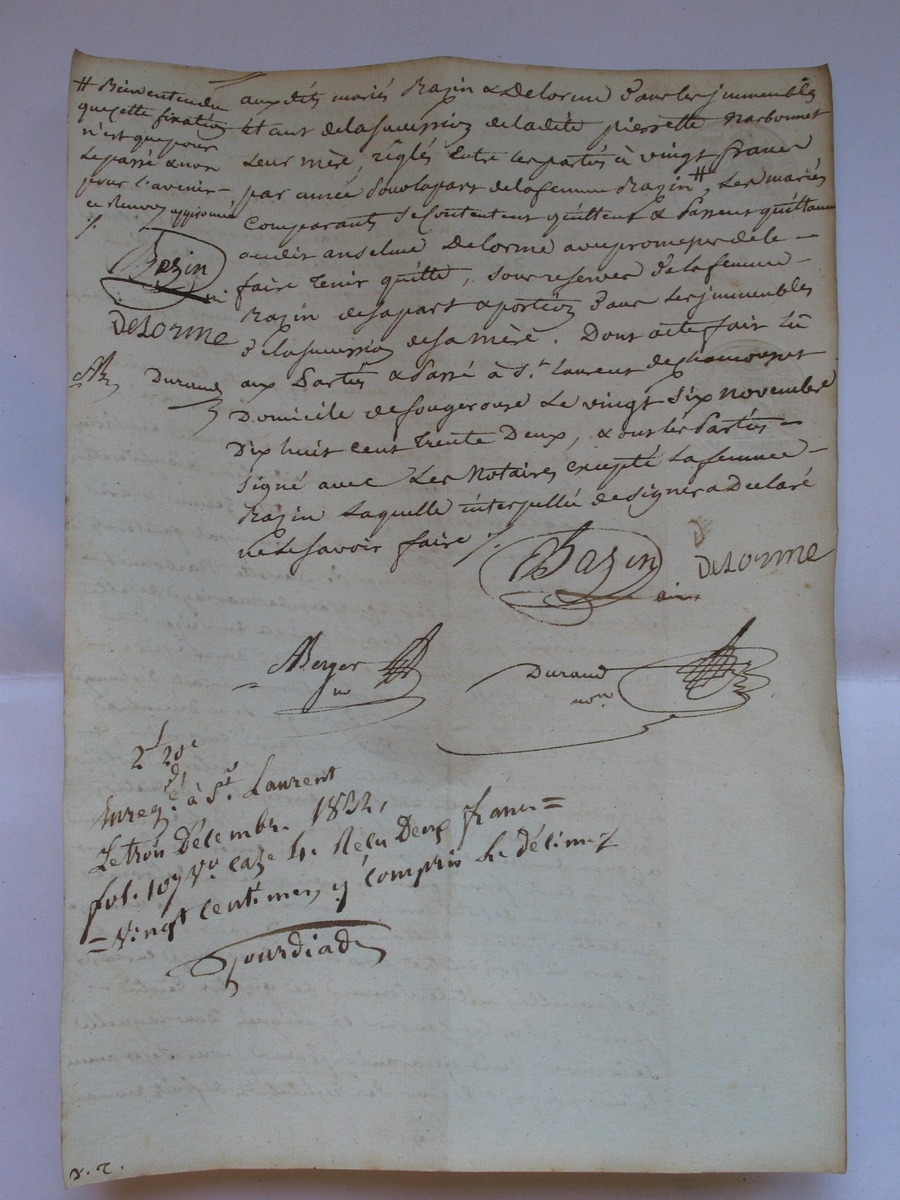 # Bien entendu
que cette fixation
n'est que pour
le passé & non
pour l'avenir –
ce Renvoi approuvé
Bazin
Delorme
AB
Durand
aux dits mariés Bazin & Delorme dans les immeubles
étant de la succession de ladite pierrette Narbonnet
leur mère, réglés entre les parties à vingt francs
par année pour la part de la femme Bazin #, Les mariés
comparants se contentent quittent & passent quittance
audit anselme Delorme avec promesse de le –
faire tenir quitte, sous reserve de la femme –
Bazin de sa part & portion dans les immeubles
de la succession de sa mère. Dont acte fait lû
aux Parties & Passé à St. Laurent de chamousset
Domicile de fougerouse le vingt six novembre
Dix huit cent trente Deux, & ont les Parties –
signé avec les Notaires excepté la femme –
Bazin laquelle interpellée de signer a Declaré
ne le savoir faire
Bazin
Delorme
ABerger
nre
Durand
nore
2f 20c
Enregt. à St. Laurent
Le trois Décembre 1832,
fol. 107 Vo. case 4. Reçu Deux francs =
= Vingt Centimes y compris le décime
Gourdiad